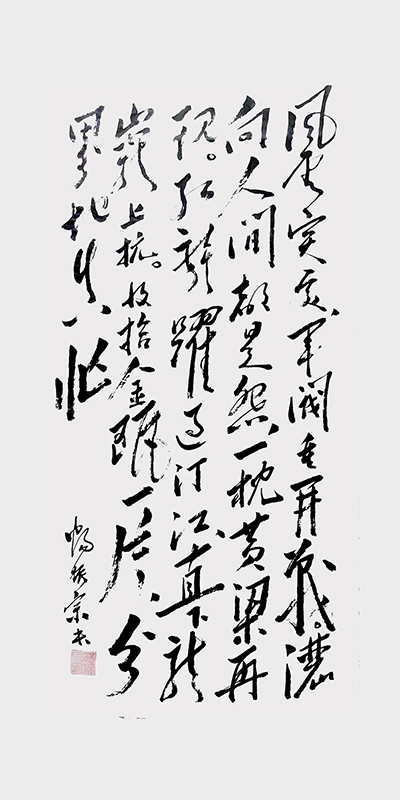 风雲突变军阀重开戰灑
向人間都是怨一枕黄粱再
现。红旗躍过汀江直下龙
巖上杭。收拾金瓯一片分
田分地真忙
振宗书